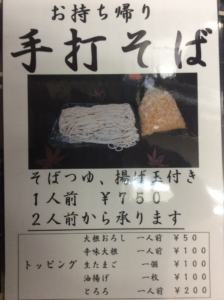 お持ち帰り
手打そば
そばつゆ、揚げ玉付き
1人前 ¥750
2人前から承ります
トッピング
大根おろし 一人前 ¥50
辛味大根 一人前 ¥100
生たまご 一個 ¥100
油揚げ 一枚 ¥100
とろろ 一人前 ¥200